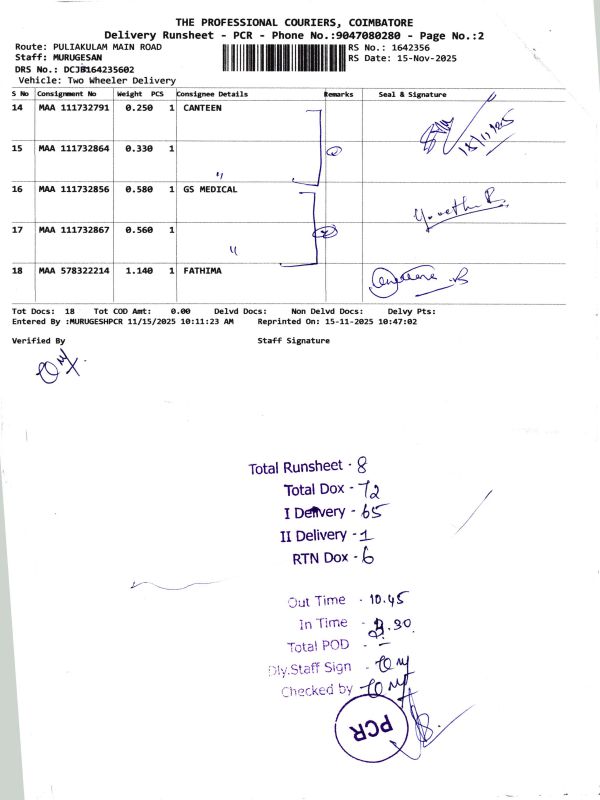 THE PROFESSIONAL COURIERS, COIMBATORE
Delivery Runsheet - PCR - Phone No.:9047080280 - Page No.:2
Route: PULIAKULAM MAIN ROAD RS No.: 1642356
Staff: MURUGESAN RS Date: 15-Nov-2025
DRS No.: DCJB164235602
Vehicle: Two Wheeler Delivery
S No Consignment No Weight PCS Consignee Details Remarks Seal & Signature
14 MAA 111732791 0.250 1 CANTEEN
15 MAA 111732864 0.330 1 "
16 MAA 111732856 0.580 1 GS MEDICAL
17 MAA 111732867 0.560 1 "
18 MAA 578322214 1.140 1 FATHIMA
Tot Docs: 18 Tot COD Amt: 0.00 Delvd Docs: Non Delvd Docs: Delvy Pts:
Entered By :MURUGESHPCR 11/15/2025 10:11:23 AM Reprinted On: 15-11-2025 10:47:02
Verified By Staff Signature
Total Runsheet - 8
Total Dox - 72
I Delivery - 65
II Delivery - 1
RTN Dox - 6
Out Time - 10.45
In Time - .30
Total POD - —
Dly.Staff Sign -
Checked by
PCR